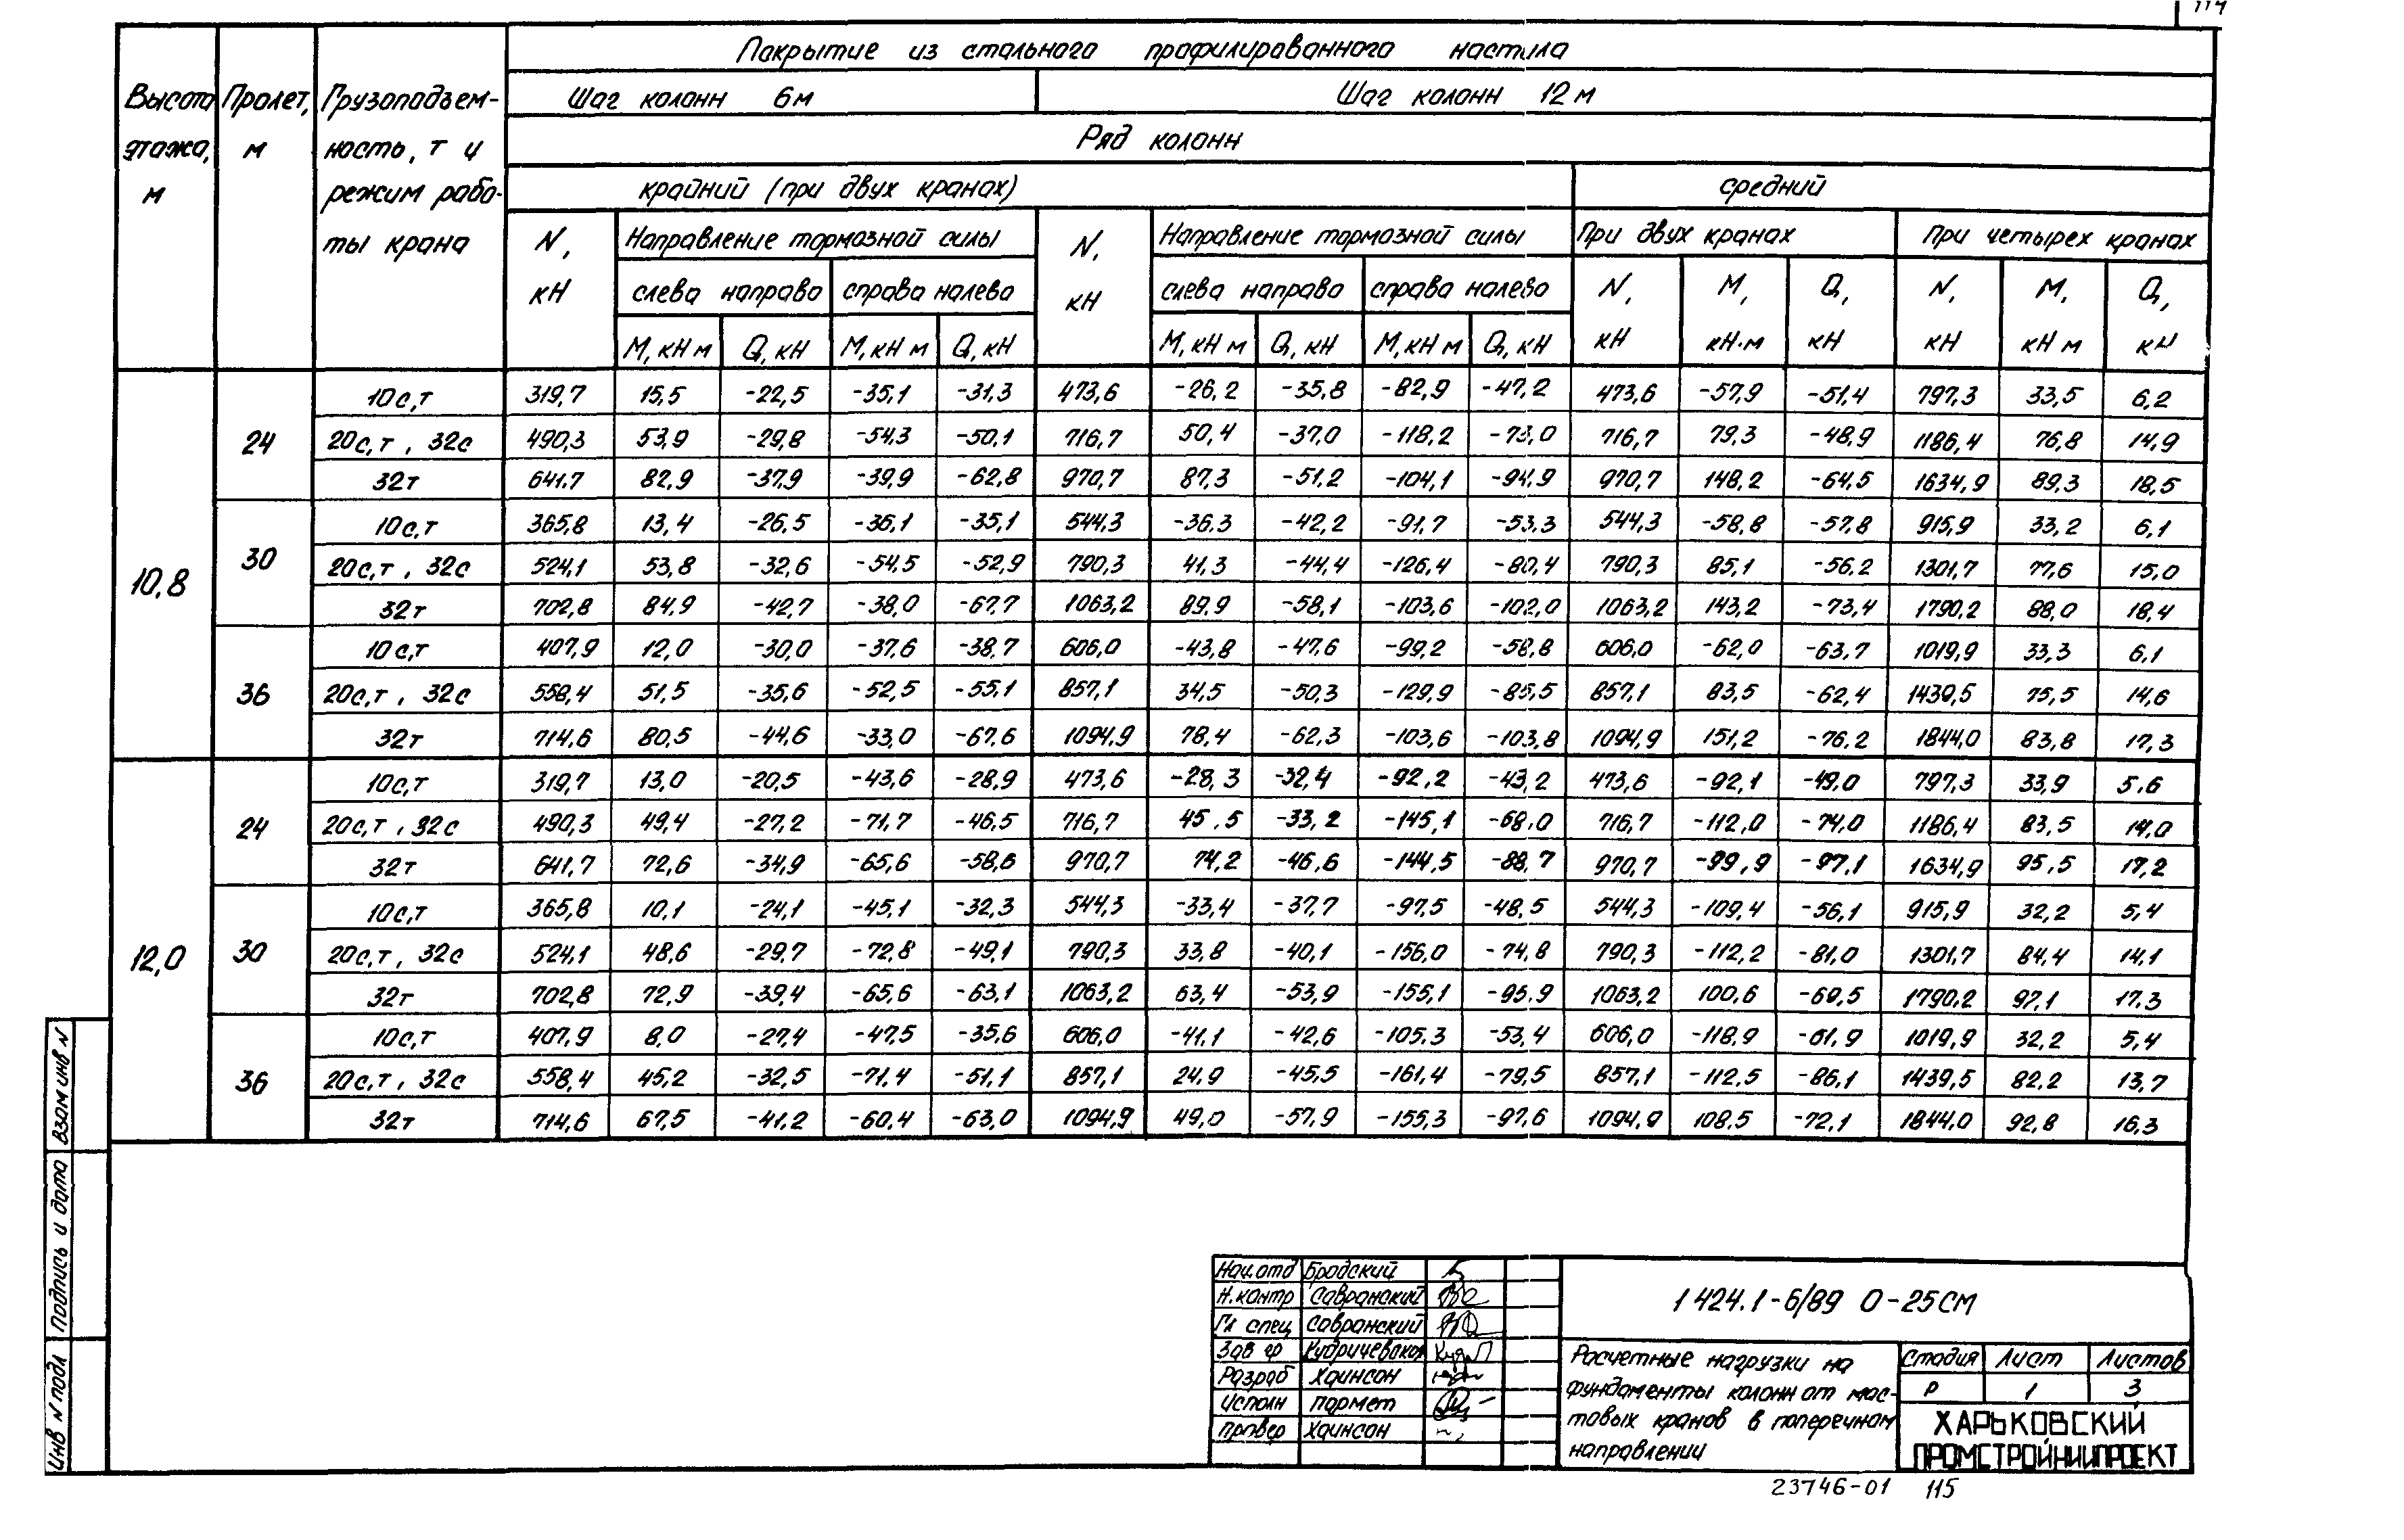 114
Покрытие из стального профилированного настила
Высота этажа, м
Пролет, м
Грузоподъем-
ность, т и
режим рабо-
ты крана
Шаг колонн 6м
Шаг колонн 12м
Ряд колонн
крайний (при двух кранах)
средний
N, кН
Направление тормозной силы
N, кН
Направление тормозной силы
При двух кранах
при четырех кранах
слева направо справа налево
слева направо справа налево
N, кН M, кН·м Q, кН N, кН M, кН м Q, кН
M, кН м Q, кН M, кН м Q, кН
M, кН м Q, кН M, кН м Q, кН
10,8
24
10с,т 319,7 15,5 -22,5 -35,1 -31,3 473,6 -26,2 -35,8 -82,9 -47,2 473,6 -57,9 -51,4 797,3 33,5 6,2
20с,т, 32с 490,3 53,9 -29,8 -54,3 -50,1 716,7 50,4 -37,0 -118,2 -73,0 716,7 79,3 -48,9 1186,4 76,8 14,9
32т 641,7 82,9 -37,9 -39,9 -62,8 970,7 87,3 -51,2 -104,1 -94,9 970,7 148,2 -64,5 1634,9 89,3 18,5
30
10с,т 365,8 13,4 -26,5 -36,1 -35,1 544,3 -36,3 -42,2 -91,7 -53,3 544,3 -58,8 -57,8 915,9 33,2 6,1
20с,т, 32с 524,1 53,8 -32,6 -54,5 -52,9 790,3 41,3 -44,4 -126,4 -80,4 790,3 85,1 -56,2 1301,7 77,6 15,0
32т 702,8 84,9 -42,7 -38,0 -67,7 1063,2 89,9 -58,1 -103,6 -102,0 1063,2 143,2 -73,4 1790,2 88,0 18,4
36
10с,т 407,9 12,0 -30,0 -37,6 -38,7 606,0 -43,8 -47,6 -99,2 -58,8 606,0 -62,0 -63,7 1019,9 33,3 6,1
20с,т, 32с 558,4 51,5 -35,6 -52,5 -55,1 857,1 34,5 -50,3 -129,9 -85,5 857,1 83,5 -62,4 1439,5 75,5 14,6
32т 714,6 80,5 -44,6 -33,0 -67,6 1094,9 78,4 -62,3 -103,6 -103,8 1094,9 151,2 -76,2 1844,0 83,8 17,3
12,0
24
10с,т 319,7 13,0 -20,5 -43,6 -28,9 473,6 -28,3 -32,4 -92,2 -43,2 473,6 -92,1 -49,0 797,3 33,9 5,6
20с,т, 32с 490,3 49,4 -27,2 -71,7 -46,5 716,7 45,5 -33,2 -145,1 -68,0 716,7 -112,0 -74,0 1186,4 83,5 14,0
32т 641,7 72,6 -34,9 -65,6 -58,6 970,7 74,2 -46,6 -144,5 -88,7 970,7 -99,9 -97,1 1634,9 95,5 17,2
30
10с,т 365,8 10,1 -24,1 -45,1 -32,3 544,3 -33,4 -37,7 -97,5 -48,5 544,3 -109,4 -56,1 915,9 32,2 5,4
20с,т, 32с 524,1 48,6 -29,7 -72,8 -49,1 790,3 33,8 -40,1 -156,0 -74,8 790,3 -112,2 -81,0 1301,7 84,4 14,1
32т 702,8 72,9 -39,4 -65,6 -63,1 1063,2 63,4 -53,9 -155,1 -95,9 1063,2 100,6 -69,5 1790,2 97,1 17,3
36
10с,т 407,9 8,0 -27,4 -47,5 -35,6 606,0 -41,1 -42,6 -105,3 -53,4 606,0 -118,9 -61,9 1019,9 32,2 5,4
20с,т, 32с 558,4 45,2 -32,5 -71,4 -51,1 857,1 24,9 -45,5 -161,4 -79,5 857,1 -112,5 -86,1 1439,5 82,2 13,7
32т 714,6 67,5 -41,2 -60,4 -63,0 1094,9 49,0 -57,9 -155,3 -97,6 1094,9 108,5 -72,1 1844,0 92,8 16,3
Взам инв N
Подпись и дата
Инв N подл
Нач.отд Бродский
Н.контр Савранский
Гл спец Савранский
Зав гр
Разраб Хаинсон
Исполн Пармет
Провер Хаинсон
1 424.1-6/89 0-25СМ
Расчетные нагрузки на
фундаменты колонн от мос-
товых кранов в поперечном
направлении
Стадия Лист Листов
Р 1 3
ХАРЬКОВСКИЙ
ПРОМСТРОЙНИИПРОЕКТ
23746-01 115